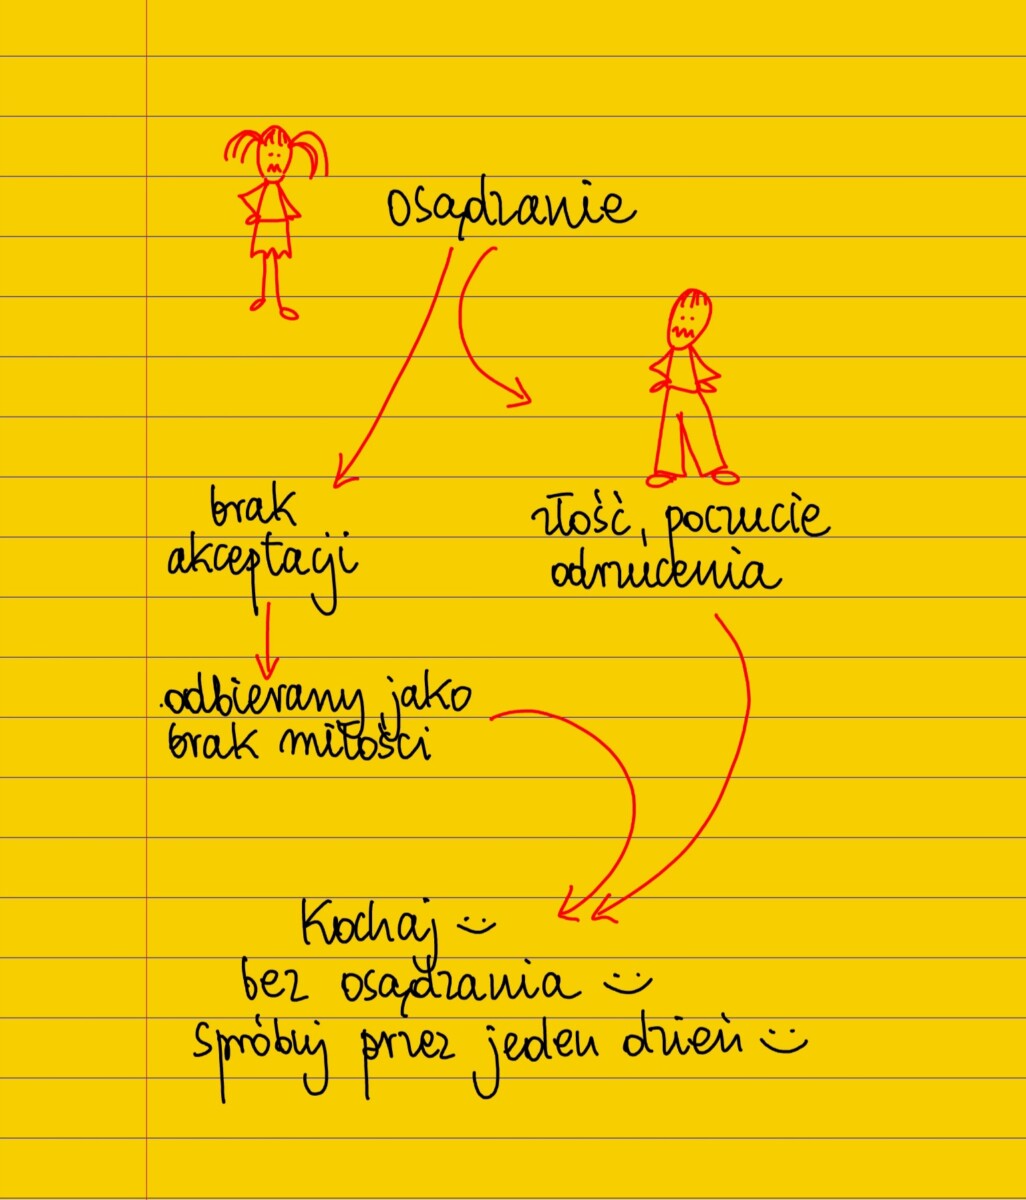 osądzanie
brak
akceptacji
złość, poczucie
odrzucenia
odbierany jako
brak miłości
Kochaj
bez osądzania
Spróbuj przez jeden dzień